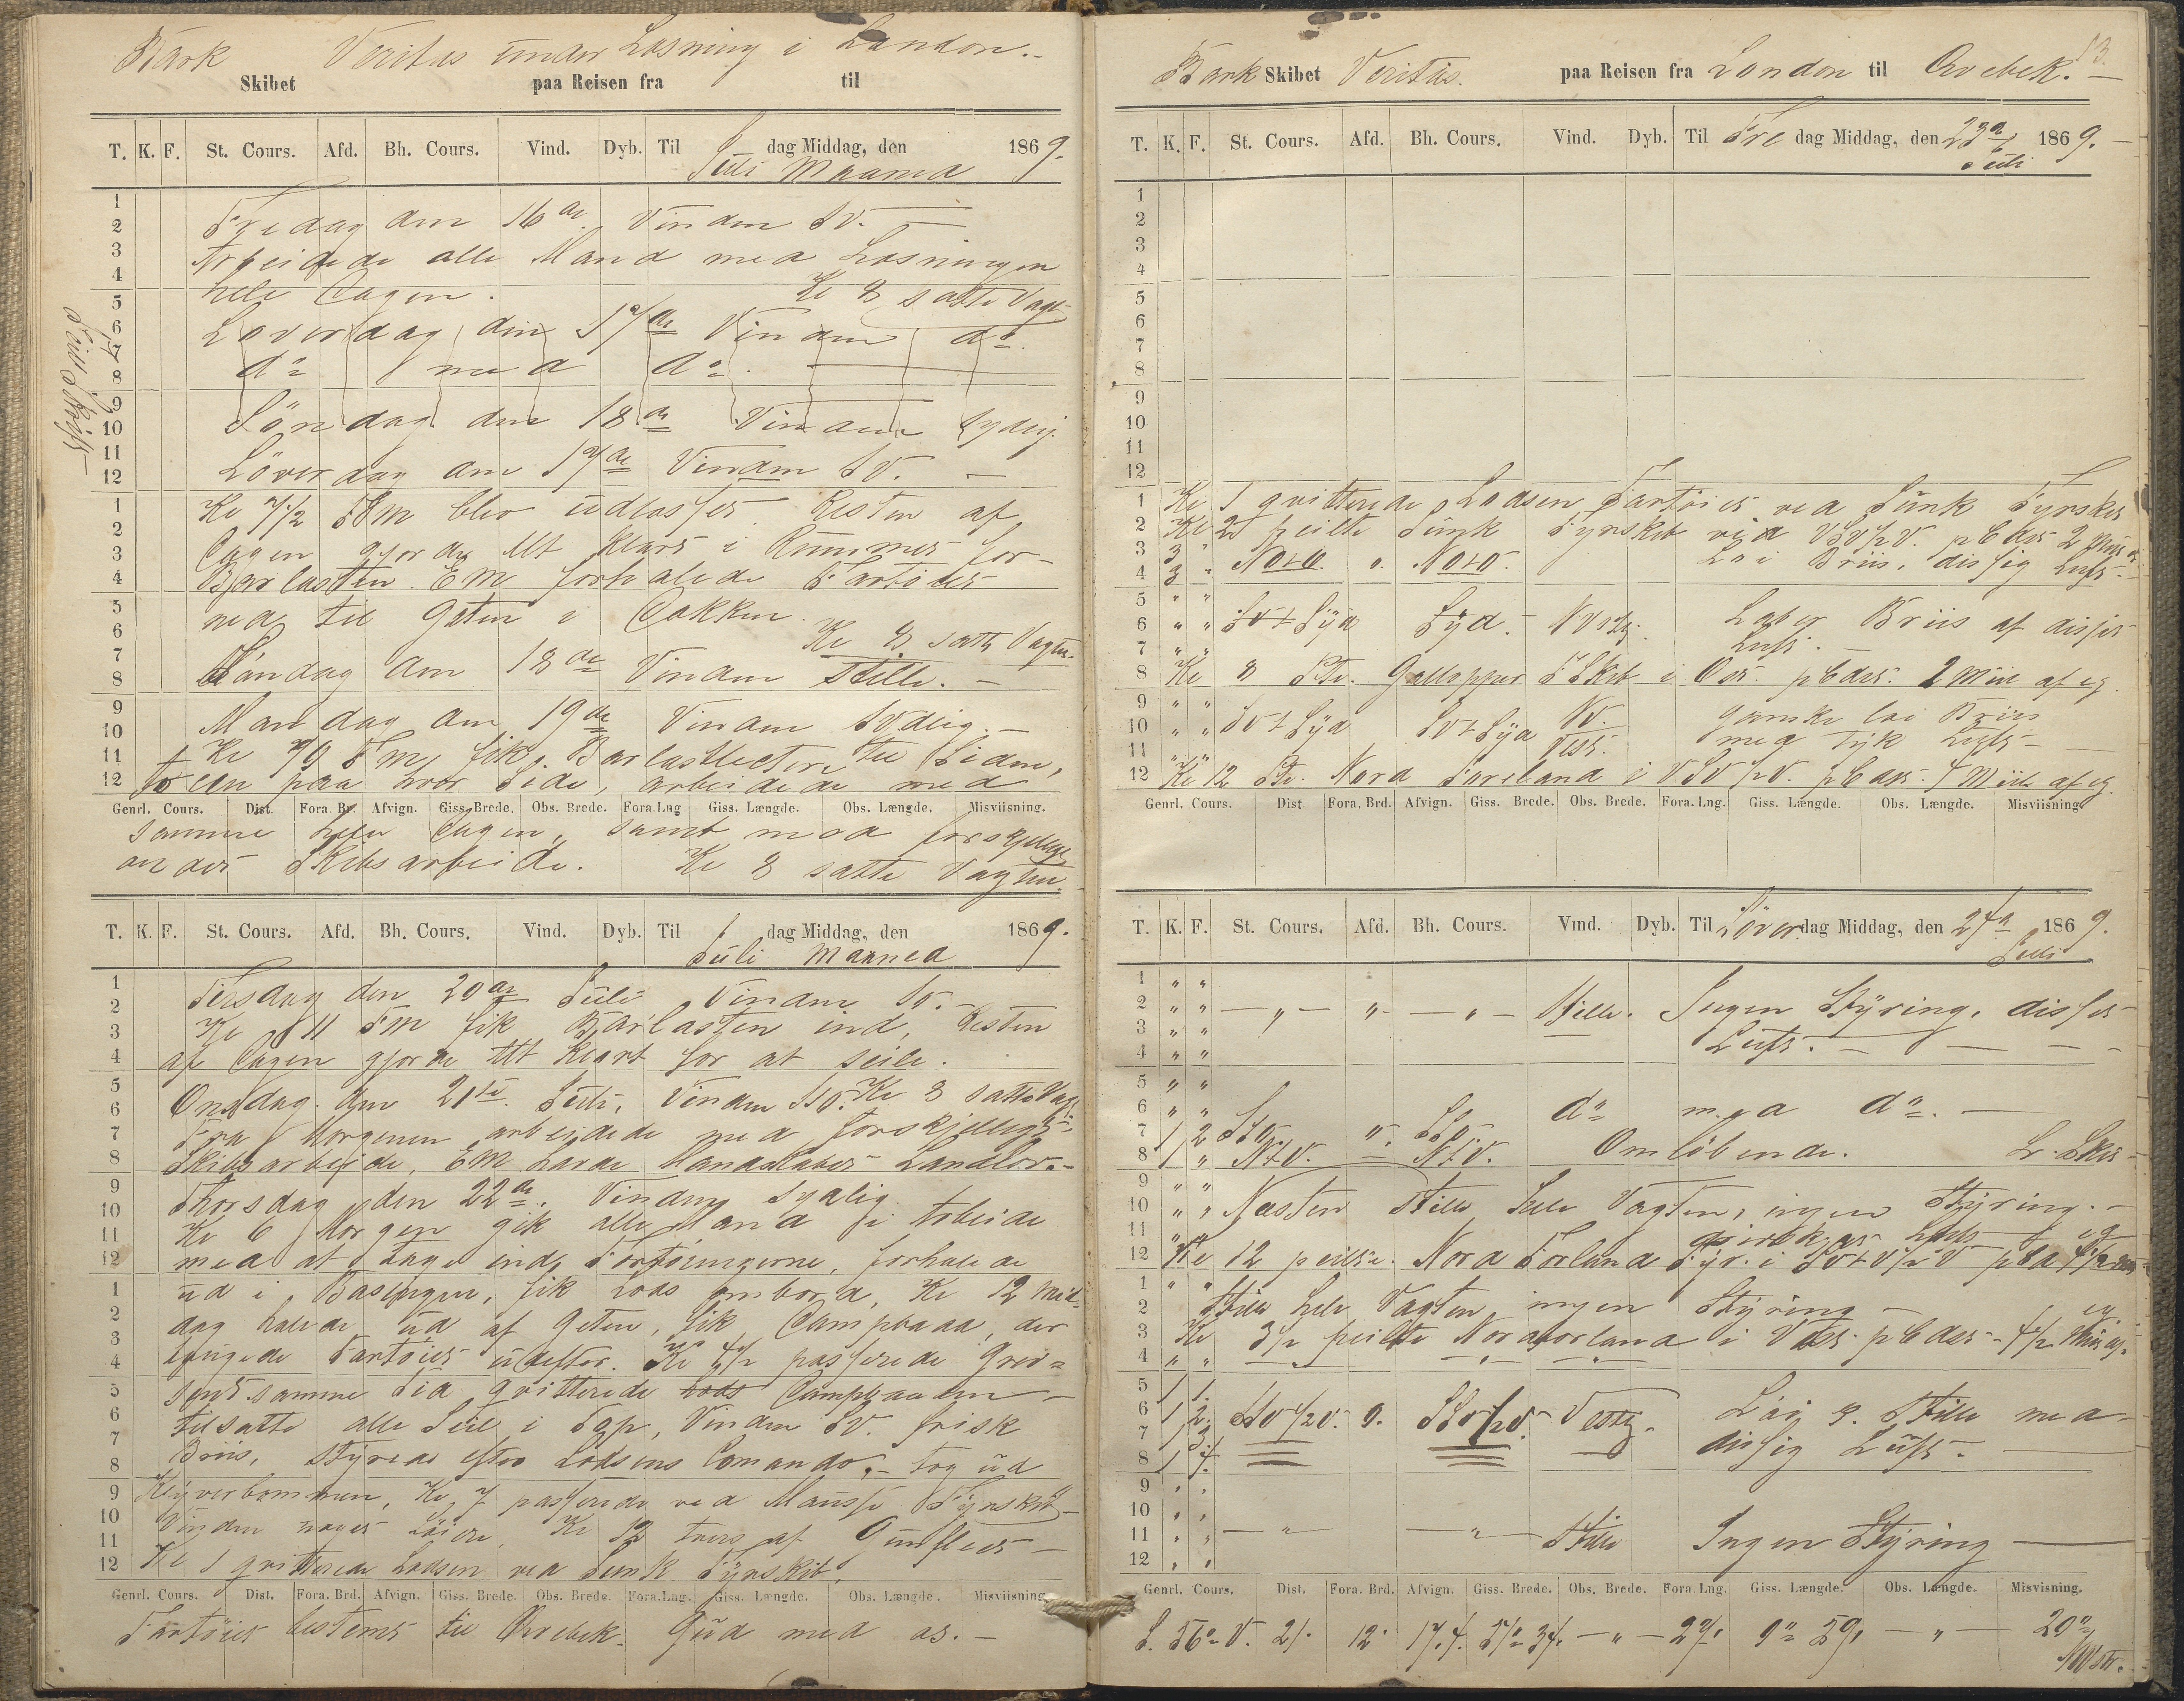 Bark Veritas under Losning i London.-
Skibet paa Reisen fra til
T. K. F. St. Cours. Afd. Bh. Cours. Vind. Dyb. Til dag Middag, den 1869.
Juli Maaned
Fredag den 16de Vinden SV. —
Arbeidede alle Mand med Losningen
hele Dagen. Kl 8 satte Vagt
Loverdag den 17de Vinden do.
do med do. —
Söndag den 18de Vinden Sydlig.
Löverdag den 17de Vinden SV. —
Kl 7 1/2 FM blev udlosset. Resten af
Dagen gjordes Alt klart i Rummet for
Barlasten. EM forhalede Fartöiet
ned til Gaten i Dokken.
Kl 8 satte Vagten.
Söndag den 18de Vinden Stille. —
Mandag den 19de Vinden Sydlig. —
Kl FM fik Barlastlectere til Siden,
to en paa hver Side, arbeidede med
Genrl. Cours. Dist. Fora. Br. Afvign. Giss. Brede. Obs. Brede. Fora.Lng Giss. Længde. Obs. Længde. Misviisning.
samme hele Dagen, samt med forskjelligt
andet Skibsarbeide. Kl 8 satte Vagten.
T. K. F. St. Cours. Afd. Bh. Cours. Vind. Dyb. Til dag Middag, den 1869.
Juli Maaned
Tirsdag den 20de Juli Vinden
Kl 11 FM fik Barlasten ind, Resten
af Dagen gjorde Alt klart for at seile.
Onsdag den 21te Juli, Vinden Kl 8 satte Vagt
Fra Morgenen arbeidede med forskjelligt
Skibsarbeide, EM havde Mandskabet Landlov.-
Thorsdag den 22de. Vinden Sydlig.
Kl 6 Morgen gik alle Mand i Arbeide
med at tage ind Fortöiningerne, forhalede
ud i Basingen, fik Lods ombord, Kl 12 Mid-
dag halede ud af Geten, fik Dampbaad, der
bugserede Fartöiet udefter. Kl 4 1/2 passerede Grev=
send samme Tid qvitterede Lods Dampbaaden —
tilsatte alle Seil i Top, Vinden SV. frisk
Briis, styrede efter Lodsens Comando, - tog ud
Klyverbommen, Kl 7 passerede ved Mausse Fyrskib —
Vinden noget löiere, Kl 12 tvers af Gunfleet —
Kl 1 qvitterede Lodsen ved Sunk Fyrskib,
Genrl. Cours. Dist. Fora. Brd. Afvign. Giss. Brede. Obs. Brede. Fora.Lng. Giss. Længde. Obs. Længde. Misviisning
Fartöiet bestemt til Qvebek. Gud med os. —
Bark Skibet Veritas. paa Reisen fra London til Qvebek. —
13.
T. K. F. St. Cours. Afd. Bh. Cours. Vind. Dyb. Til Fre dag Middag, den 23de 1869. —
Juli
Kl 1 qvitterede Lodsen Fartöiet ved Sunk Fyrskib
Kl 2 peilte Sunk Fyrskib ved VSV 1/2 V. pCdist 2 Miil
NOtO. o. NOtO. Löi Briis, dissig Luft.
SOtSyd Syd. Vestl. Laber Briis af disset
Luft.
Kl 8 Pte. Gallopper FSkib i Ost. pCdist. 2 Miil af eg.
SVtSyd SVtSyd NV. ganske löi Briis
Vest. med Tyk Luft —
Kl 12 Pte. Nord Foreland i VSV 1/2 V. pCdist. 4 Miil af eg.
Genrl. Cours. Dist Fora. Brd. Afvign. Giss. Brede. Obs. Brede. Fora. Lng. Giss. Længde. Obs. Længde. Misviisning
T. K. F. St. Cours. Afd. Bh. Cours. Vind. Dyb. Til Löver dag Middag, den 24de 1869.
Juli
— „ — „ — „ — Stille. Ingen Styring, disset
Luft. —
do med do. —
1 2 SSO „ SSO
1 „ NtV. = NtV. Omlöbende.
Næsten Stille hele Vagten, ingen Styring. —
Kl 12 peilte. Nord Forland Fyr. i
Stille hele Vagten, ingen Styring —
Kl 3 1/2 peilte Nordforland i Vest pCdist 4 1/2 Miil
Vestlig. Löi & Stille med
dissig Luft. —
— „ — — „ — Stille Ingen Styring —
Genrl. Cours. Dist. Fora. Brd. Afvign. Giss. Brede. Obs. Brede. Fora. Lng. Giss. Længde. Obs. Længde. Misvisning.
S. 56° V. 21. 12. 17.4. 51° 34. — „ — 27. 0° 59. — „ — 20°